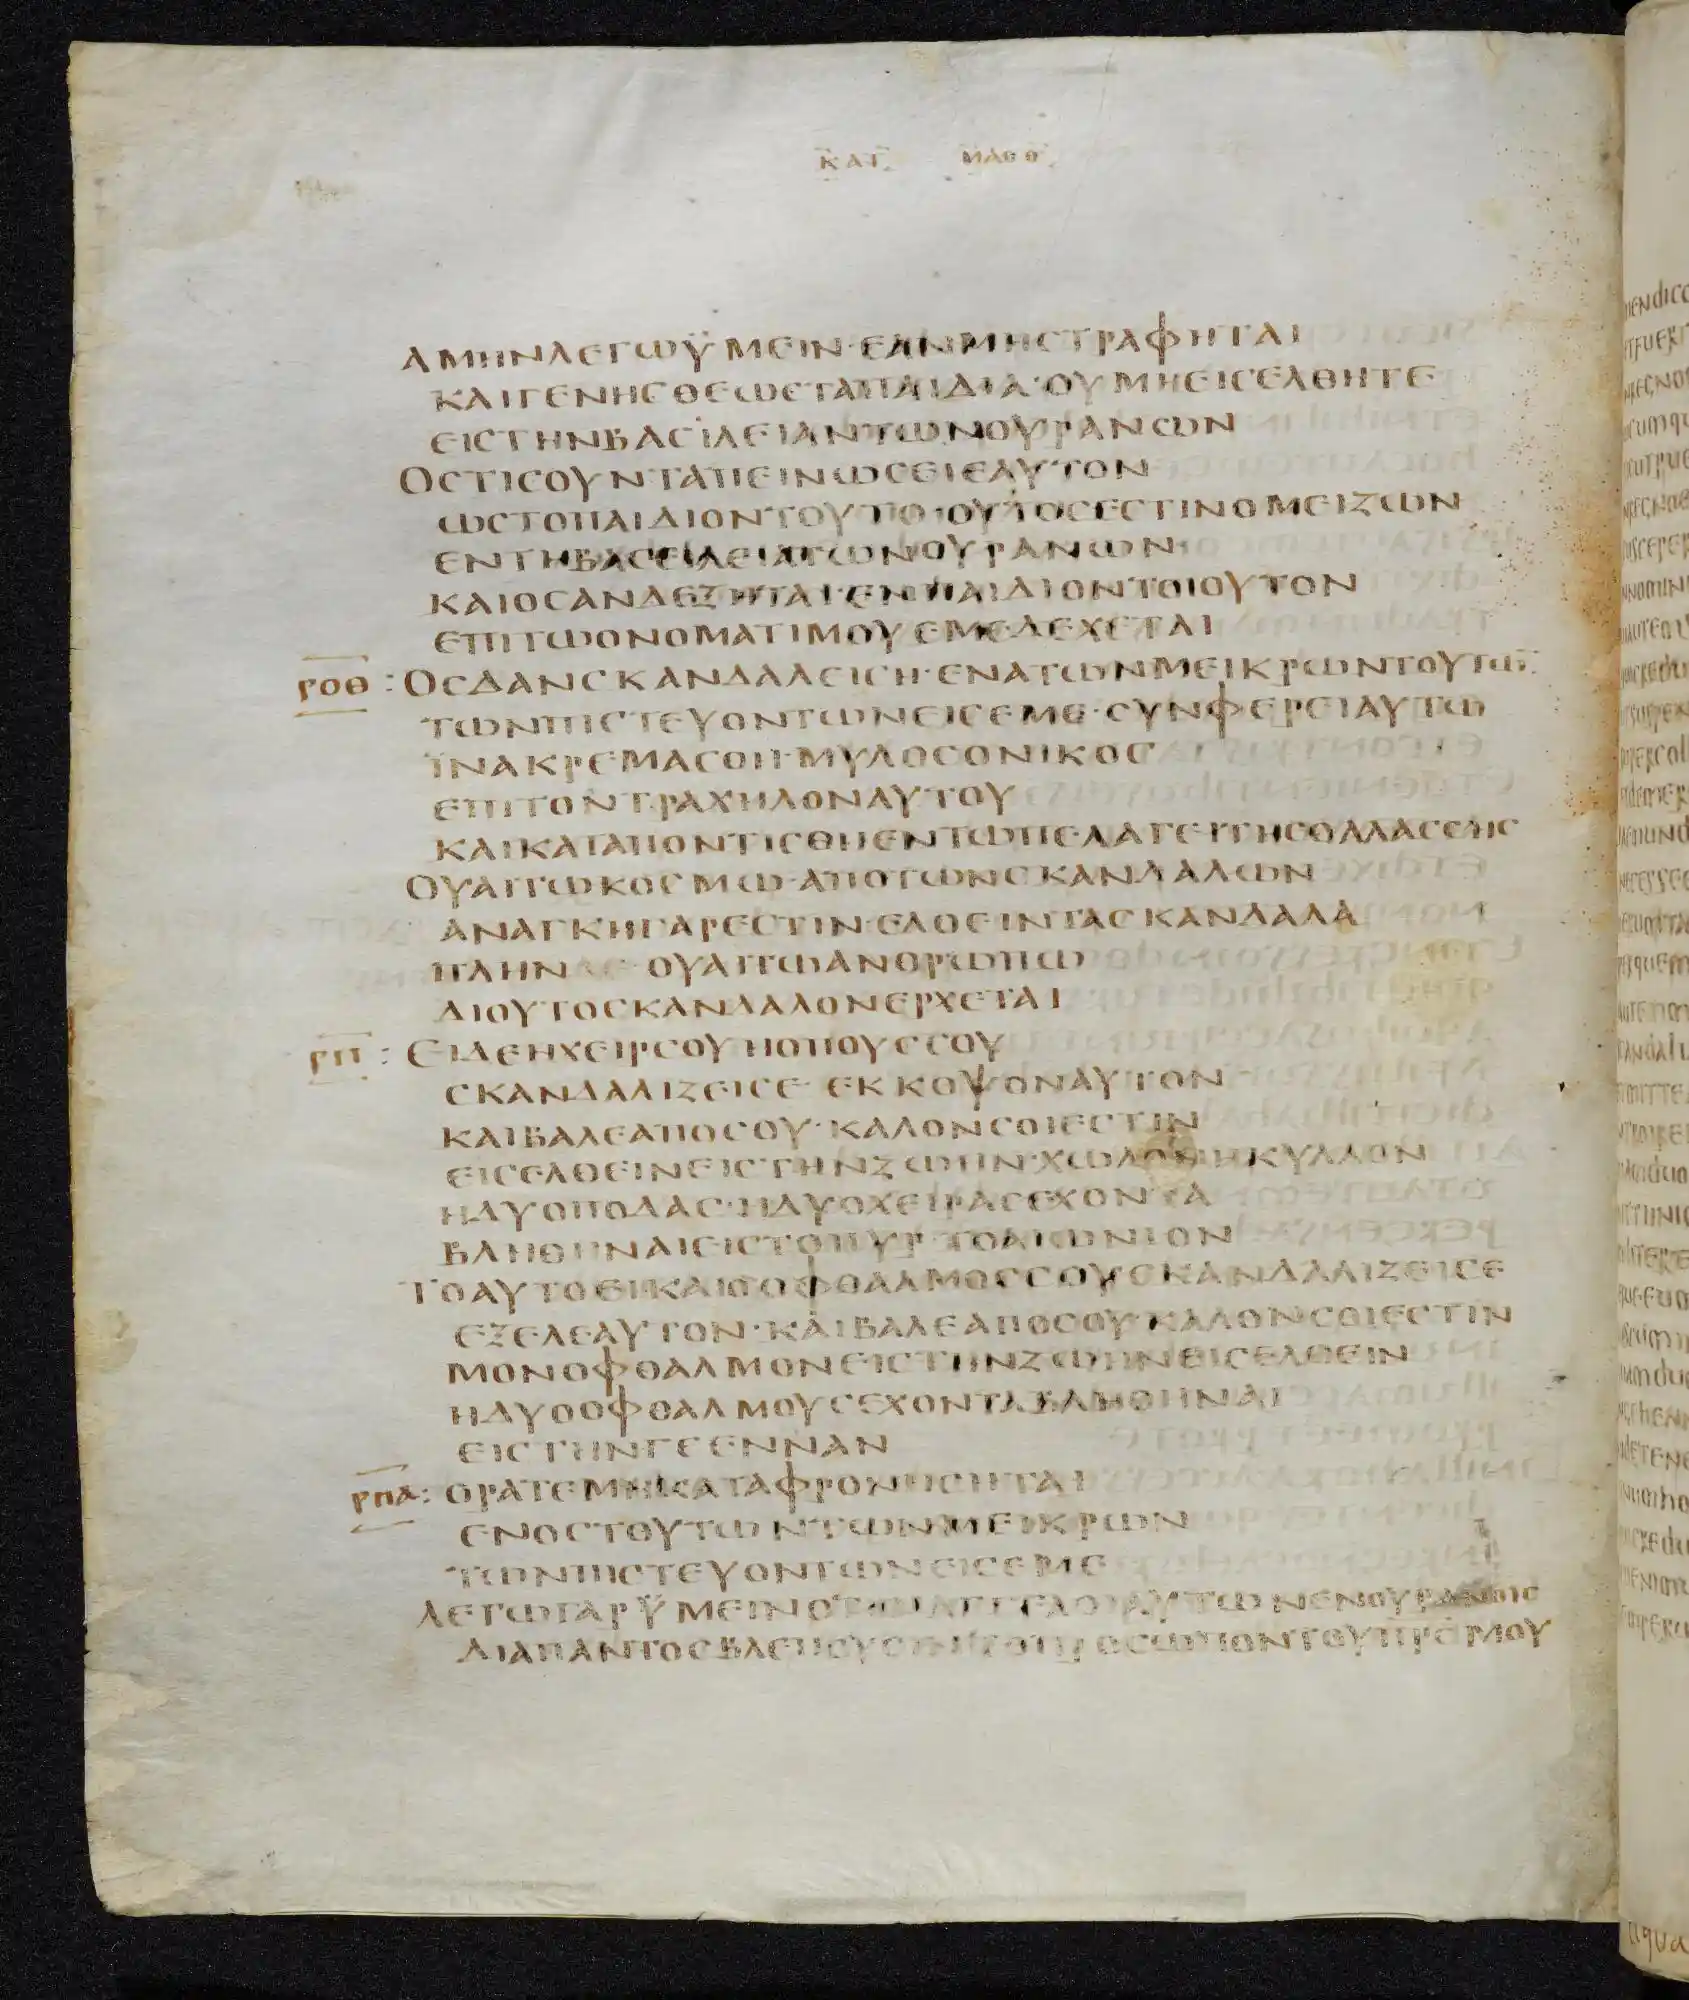 ΚΑΤ ΜΑΘΘ
ΑΜΗΝΛΕΓΩΫΜΕΙΝ·ΕΑΝΜΗΣΤΡΑΦΗΤΑΙ
ΚΑΙΓΕΝΗΣΘΕΩΣΤΑΠΑΙΔΙΑ·ΟΥΜΗΕΙΣΕΛΘΗΤΕ
ΕΙΣΤΗΝΒΑΣΙΛΕΙΑΝΤΩΝΟΥΡΑΝΩΝ
ΟΣΤΙΣΟΥΝΤΑΠΕΙΝΩΣΕΙΕΑΥΤΟΝ
ΩΣΤΟΠΑΙΔΙΟΝΤΟΥΤΟ·ΟΥΤΟΣΕΣΤΙΝΟΜΕΙΖΩΝ
ΕΝΤΗΒΑΣΕΙΛΕΙΑΤΩΝΟΥΡΑΝΩΝ
ΚΑΙΟΣΑΝΔΕΞΗΤΑΙ·ΕΝΠΑΙΔΙΟΝΤΟΙΟΥΤΟΝ
ΕΠΙΤΩΟΝΟΜΑΤΙΜΟΥΕΜΕΔΕΧΕΤΑΙ
ΡΟΘ : ΟΣΔΑΝΣΚΑΝΔΑΛΕΙΣΗ·ΕΝΑΤΩΝΜΕΙΚΡΩΝΤΟΥΤΩ̅
ΤΩΝΠΙΣΤΕΥΟΝΤΩΝΕΙΣΕΜΕ·ΣΥΝΦΕΡΕΙΑΥΤΩ
ΪΝΑΚΡΕΜΑΣΘΗ·ΜΥΛΟΣΟΝΙΚΟΣ
ΕΠΙΤΟΝΤΡΑΧΗΛΟΝΑΥΤΟΥ
ΚΑΙΚΑΤΑΠΟΝΤΙΣΘΗΕΝΤΩΠΕΛΑΓΕΙΤΗΣΘΑΛΑΣΣΗΣ
ΟΥΑΙΤΩΚΟΣΜΩ·ΑΠΟΤΩΝΣΚΑΝΔΑΛΩΝ
ΑΝΑΓΚΗΓΑΡΕΣΤΙΝ·ΕΛΘΕΙΝΤΑΣΚΑΝΔΑΛΑ
ΠΛΗΝΔΕ ΟΥΑΙΤΩΑΝΘΡΩΠΩ
ΔΙΟΥΤΟΣΚΑΝΔΑΛΟΝΕΡΧΕΤΑΙ
ΡΠ : ΕΙΔΕΗΧΕΙΡΣΟΥΗΟΠΟΥΣΣΟΥ
ΣΚΑΝΔΑΛΙΖΕΙΣΕ· ΕΚΚΟΨΟΝΑΥΤΟΝ
ΚΑΙΒΑΛΕΑΠΟΣΟΥ·ΚΑΛΟΝΣΟΙΕΣΤΙΝ
ΕΙΣΕΛΘΕΙΝΕΙΣΤΗΝΖΩΗΝ·ΧΩΛΟΝΗΚΥΛΛΟΝ
ΗΔΥΟΠΟΔΑΣ·ΗΔΥΟΧΕΙΡΑΣΕΧΟΝΤΑ
ΒΛΗΘΗΝΑΙΕΙΣΤΟΠΥΡ·ΤΟΑΙΩΝΙΟΝ
ΤΟΑΥΤΟΕΙΚΑΙΟΟΦΘΑΛΜΟΣΣΟΥΣΚΑΝΔΑΛΙΖΕΙΣΕ
ΕΞΕΛΕΑΥΤΟΝ·ΚΑΙΒΑΛΕΑΠΟΣΟΥ·ΚΑΛΟΝΣΟΙΕΣΤΙΝ
ΜΟΝΟΦΘΑΛΜΟΝΕΙΣΤΗΝΖΩΗΝΕΙΣΕΛΘΕΙΝ
ΗΔΥΟΟΦΘΑΛΜΟΥΣΕΧΟΝΤΑΒΛΗΘΗΝΑΙ
ΕΙΣΤΗΝΓΕΕΝΝΑΝ
ΡΠΑ : ΟΡΑΤΕΜΗΚΑΤΑΦΡΟΝΗΣΗΤΑΙ
ΕΝΟΣΤΟΥΤΩΝΤΩΝΜΕΙΚΡΩΝ
ΤΩΝΠΙΣΤΕΥΟΝΤΩΝΕΙΣΕΜΕ
ΛΕΓΩΓΑΡΫΜΕΙΝΟΤΙΟΙΑΓΓΕΛΟΙΑΥΤΩΝΕΝΟΥΡΑΝΟΙΣ
ΔΙΑΠΑΝΤΟΣΒΛΕΠΟΥΣΙΝΤΟΠΡΟΣΩΠΟΝΤΟΥΠΡΣΜΟΥ